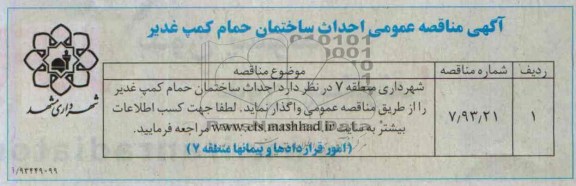 آگهی مناقصه عمومی احداث ساختمان حمام کمپ غدیر
ردیف شماره مناقصه موضوع مناقصه
۱ ۷٫۹۳٫۲۱ شهرداری منطقه ۷ در نظر دارد احداث ساختمان حمام کمپ غدیر
را از طریق مناقصه عمومی واگذار نماید. لطفا جهت کسب اطلاعات
بیشتر به سایت www.ets.mashhad.ir مراجعه فرمایید.
(امور قراردادها و پیمانها منطقه ۷)
شهرداری مشهد
۱/۹۳۴۴۹۰۹۹